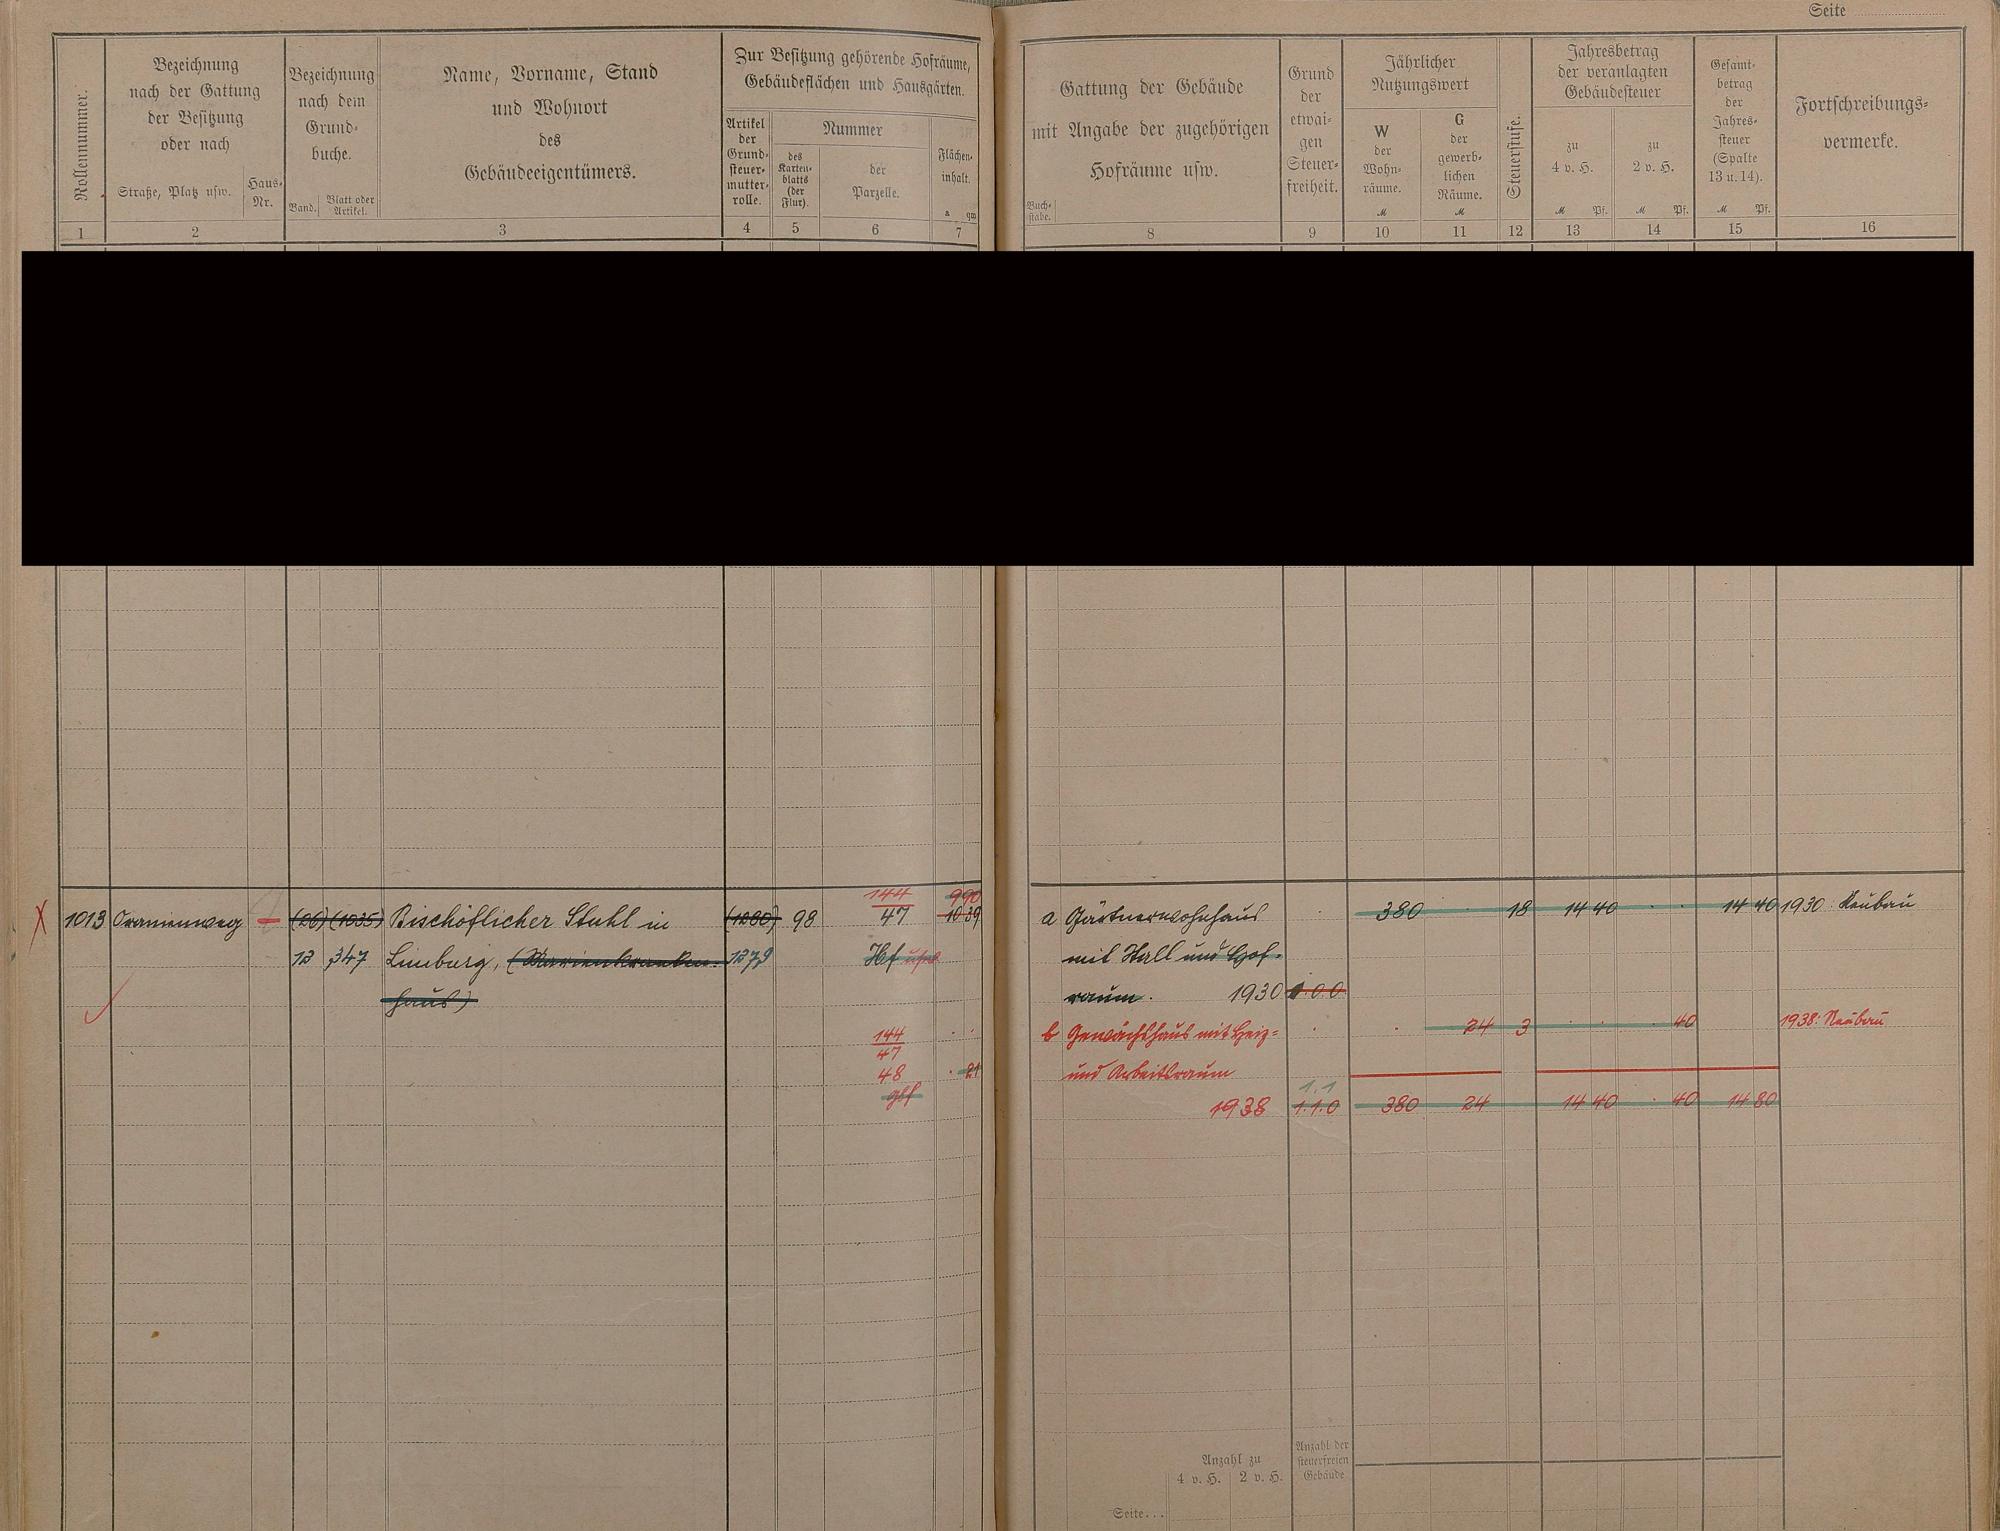 Seite
Rollennummer.
Bezeichnung
nach der Gattung
der Besitzung
oder nach
Straße, Platz usw.
Haus-
Nr.
Bezeichnung
nach dem
Grund-
buche.
Band.
Blatt oder
Artikel.
Name, Vorname, Stand
und Wohnort
des
Gebäudeeigentümers.
Zur Besitzung gehörende Hofräume,
Gebäudeflächen und Hausgärten.
Artikel
der
Grund-
steuer-
mutter-
rolle.
Nummer
des
Karten-
blatts
(der
Flur).
der
Parzelle.
Flächen-
inhalt.
a qm
1 2 3 4 5 6 7
Buch-
stabe.
Gattung der Gebäude
mit Angabe der zugehörigen
Hofräume usw.
Grund
der
etwai-
gen
Steuer-
freiheit.
Jährlicher
Nutzungswert
W
der
Wohn-
räume.
M
G
der
gewerb-
lichen
Räume.
M
Steuerstufe.
Jahresbetrag
der veranlagten
Gebäudesteuer
zu
4 v. H.
M Pf.
zu
2 v. H.
M Pf.
Gesamt-
betrag
der
Jahres-
steuer
(Spalte
13 u. 14).
M Pf.
Fortschreibungs-
vermerke.
8 9 10 11 12 13 14 15 16
144 990
1013 Oranienweg (26) (1035) Bischöflicher Stuhl in (1280) 98 47 10 39
13 347 Limburg, (Marienkranken- 1379 Hf usw
haus)
144
47
48 21
gbf
a Gärtnerwohnhaus 380 18 14 40 14 40 1930: Neubau
mit Stall und Hof-
raum. 1930 1.0.0
b Gewächshaus mit Heiz- 24 3 40 1938: Neubau
und Arbeitsraum
1.1
1938 1.1.0 380 24 14 40 40 14 80
Anzahl zu
4 v. H. 2 v. H.
Anzahl der
steuerfreien
Gebäude
Seite...